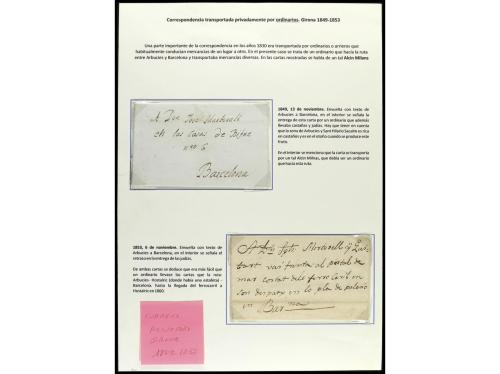 Correspondencia transportada privadamente por ordinarios. Girona 1849-1853
Una parte importante de la correspondencia en los años 1830 era transportada por ordinarios o arrieros que
habitualmente conducían mercancías de un lugar a otro. En el presente caso se trata de un ordinario que hacía la ruta
entre Arbucies y Barcelona y transportaba mercancías diversas. En las cartas mostradas se habla de un tal Alcin Milans
1849, 13 de noviembre. Envuelta con texto de
Arbucies a Barcelona, en el interior se señala la
entrega de esta carta por un ordinario que además
llevaba castañas y judías. Hay que tener en cuenta
que la zona de Arbucies y Sant Hilario Sacalm es rica
en castañas y es en el otoño cuando se produce este
fruto.
En el interior se menciona que la carta se transporta
por un tal Alcin Milnas, que debía ser un ordinario
que hacía esta ruta.
A Dn. Jose Martorell
en las casas de
nro 6
Barcelona
1853, 6 de noviembre. Envuelta con texto de
Arbucies a Barcelona, en el interior se señala el
retraso en la entrega de las judías.
De ambas cartas se deduce que era más fácil que
un ordinario llevase las cartas que la ruta:
Arbucies- Hostalric (donde había una estafeta) -
Barcelona. hasta la llegada del ferrocarril a
Hostalric en 1860.
Martorell y
al postal de
mar costat del ferro Caril en
son despaix en lo pla de palacio
en Barna
1849 1853